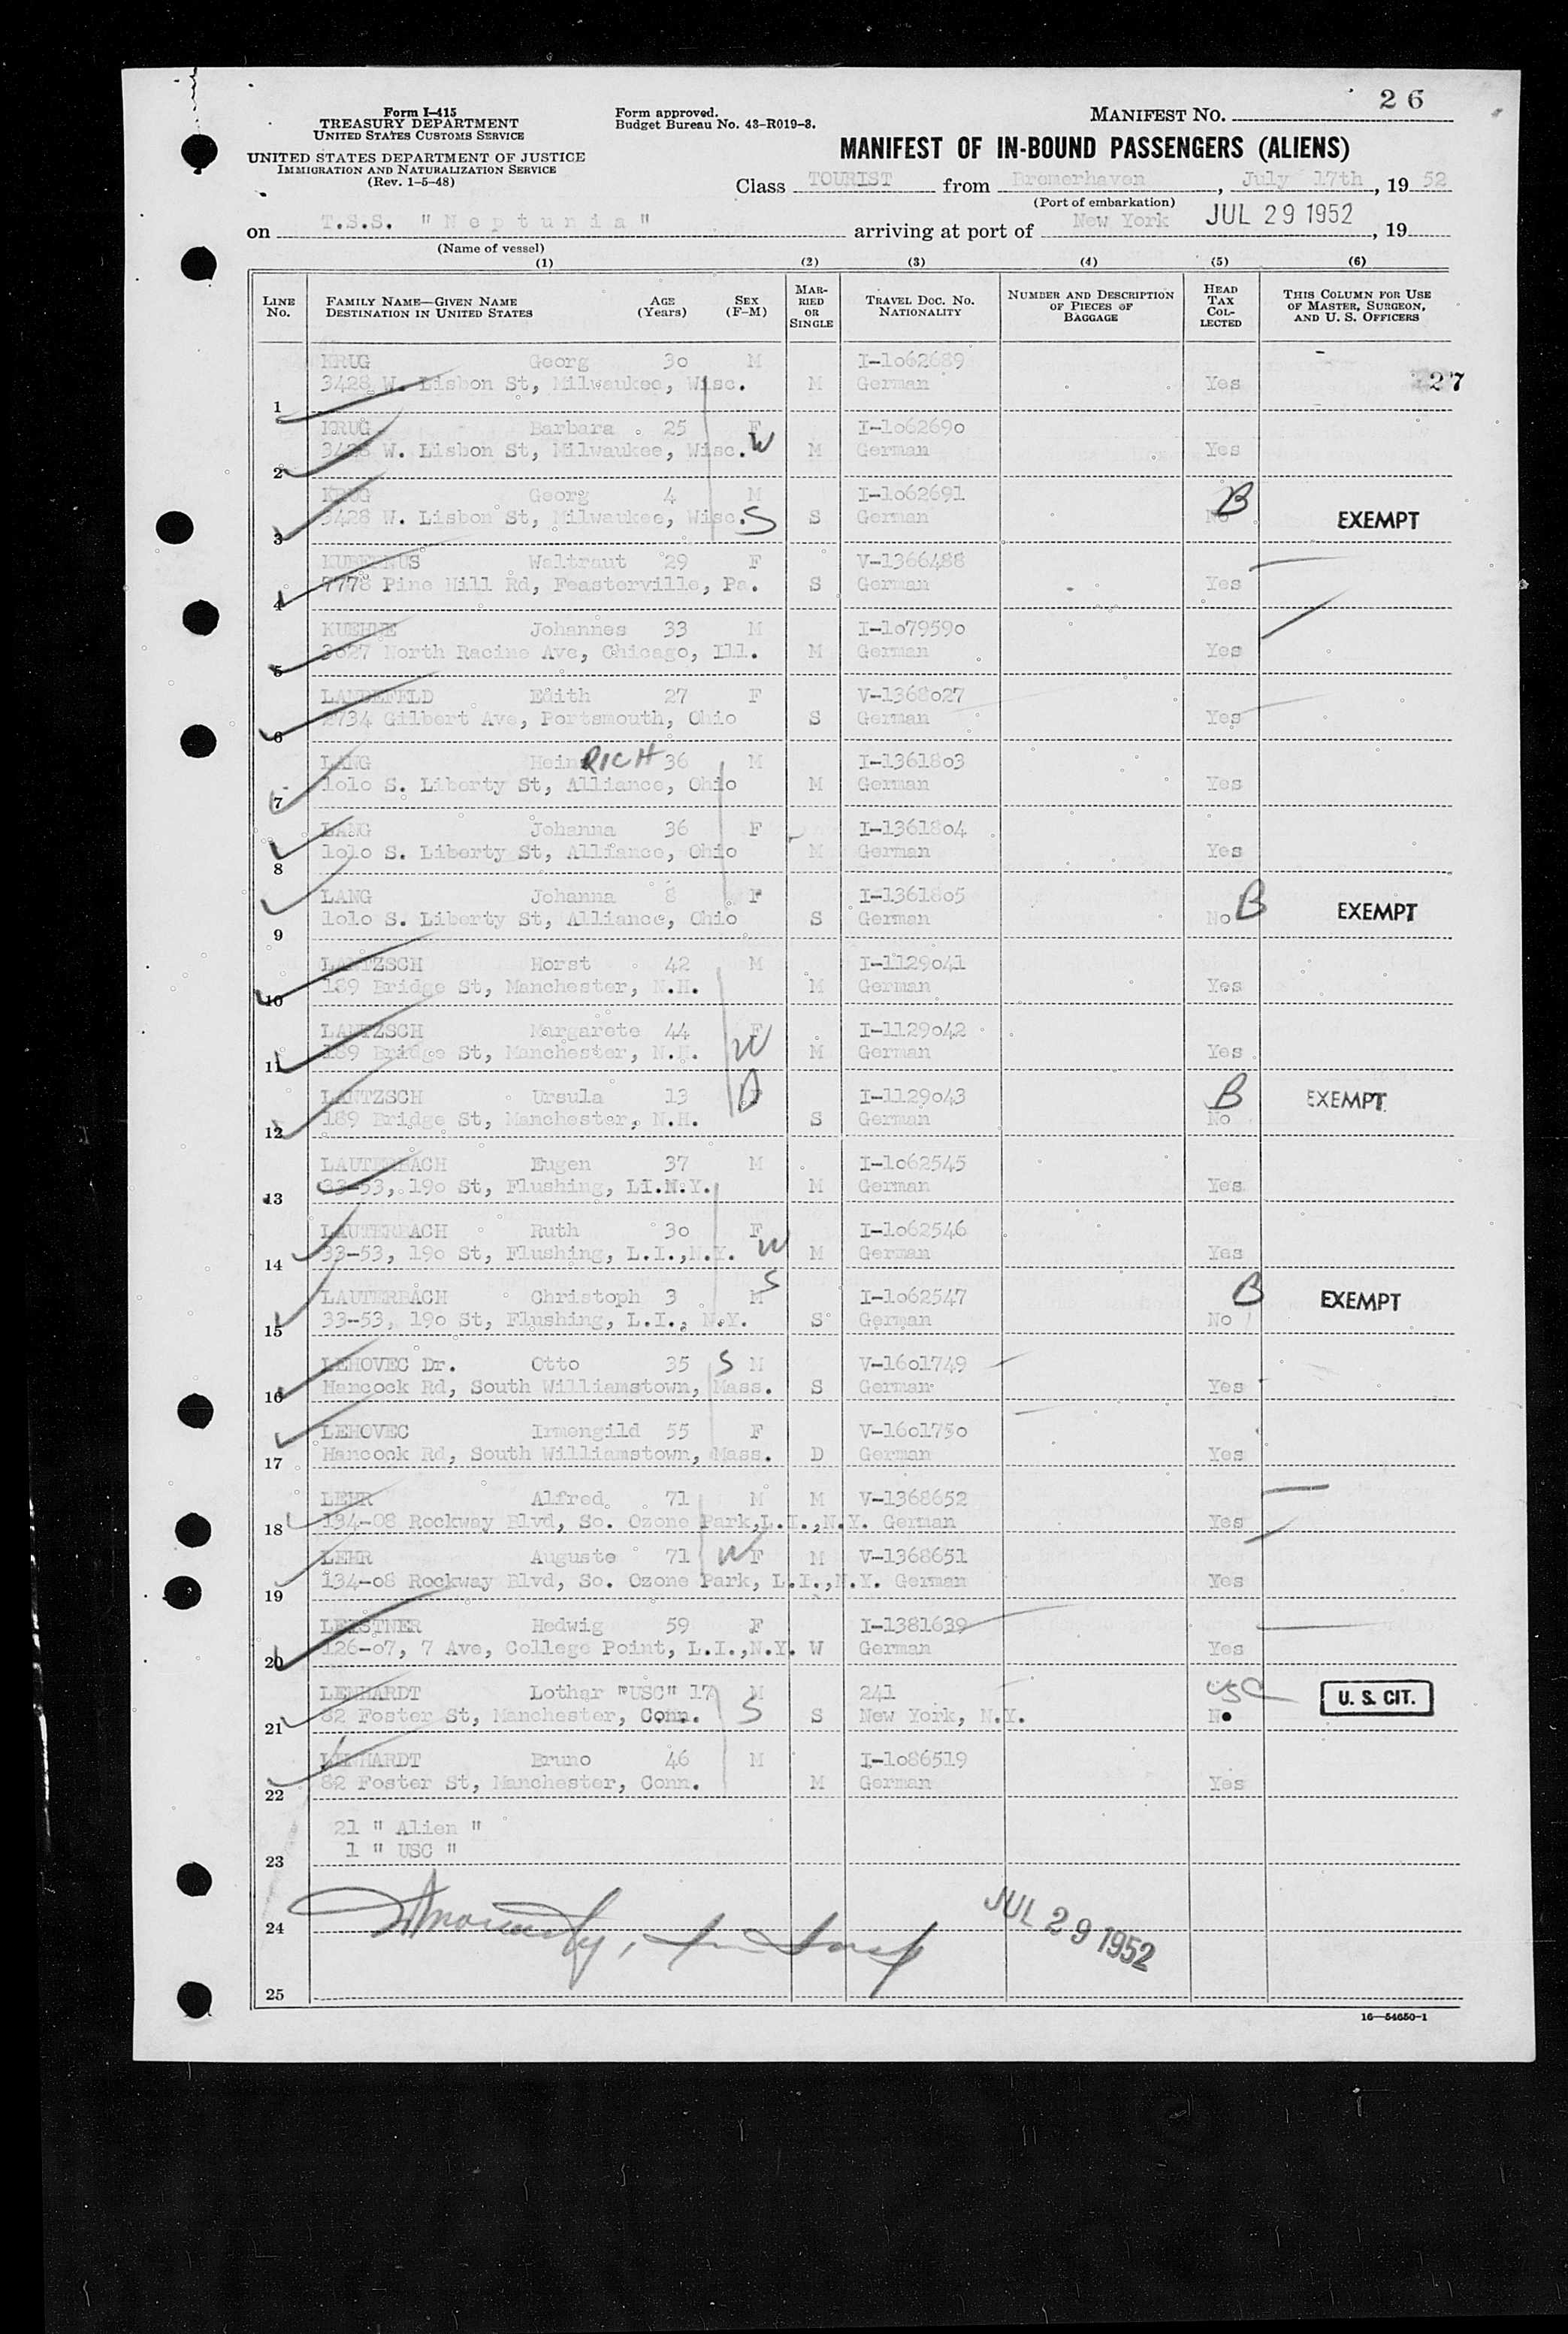 26
Form I-415
TREASURY DEPARTMENT
UNITED STATES CUSTOMS SERVICE
UNITED STATES DEPARTMENT OF JUSTICE
IMMIGRATION AND NATURALIZATION SERVICE
(Rev. 1-5-48)
Form approved.
Budget Bureau No. 43-R019-3.
MANIFEST NO.
MANIFEST OF IN-BOUND PASSENGERS (ALIENS)
Class TOURIST from Bremerhaven, July 17th, 19 52
(Port of embarkation)
on T.S.S. "Neptunia" arriving at port of New York JUL 29 1952, 19
(Name of vessel)
(1) (2) (3) (4) (5) (6)
LINE No. FAMILY NAME—GIVEN NAME DESTINATION IN UNITED STATES AGE (Years) SEX (F-M) MARRIED OR SINGLE TRAVEL DOC. NO. NATIONALITY NUMBER AND DESCRIPTION OF PIECES OF BAGGAGE HEAD TAX COLLECTED THIS COLUMN FOR USE OF MASTER, SURGEON, AND U. S. OFFICERS
KRUG Georg 30 M I-1062689
1 3428 W. Lisbon St, Milwaukee, Wisc. M German Yes 27
KRUG Barbara 25 F I-1062690
2 3428 W. Lisbon St, Milwaukee, Wisc. W M German Yes
KRUG Georg 4 M I-1062691 B
3 3428 W. Lisbon St, Milwaukee, Wisc. S S German No EXEMPT
KUBERNUS Waltraut 29 F V-1366488
4 7778 Pine Hill Rd, Feasterville, Pa. S German Yes
KUEHNE Johannes 33 M I-1079590
5 3627 North Racine Ave, Chicago, Ill. M German Yes
LANDEFELD Edith 27 F V-1368027
6 2734 Gilbert Ave, Portsmouth, Ohio S German Yes
LANG HeinRICH 36 M I-1361803
7 1010 S. Liberty St, Alliance, Ohio M German Yes
LANG Johanna 36 F I-1361804
8 1010 S. Liberty St, Alliance, Ohio M German Yes
LANG Johanna 8 F I-1361805 B
9 1010 S. Liberty St, Alliance, Ohio S German No EXEMPT
LANTZSCH Horst 42 M I-1129041
10 189 Bridge St, Manchester, N.H. M German Yes
LANTZSCH Margarete 44 F I-1129042
11 189 Bridge St, Manchester, N.H. W M German Yes
LANTZSCH Ursula 13 D I-1129043 B EXEMPT
12 189 Bridge St, Manchester, N.H. S German No
LAUTERBACH Eugen 37 M I-1062545
13 33-53, 190 St, Flushing, LI.N.Y. M German Yes
LAUTERBACH Ruth 30 F I-1062546
14 33-53, 190 St, Flushing, L.I.,N.Y. W M German Yes
LAUTERBACH Christoph 3 M S I-1062547 B EXEMPT
15 33-53, 190 St, Flushing, L.I., N.Y. S German No
LEHOVEC Dr. Otto 35 S M V-1601749
16 Hancock Rd, South Williamstown, Mass. S German Yes
LEHOVEC Irmengild 55 F V-1601750
17 Hancock Rd, South Williamstown, Mass. D German Yes
LEHR Alfred 71 M M V-1368652
18 134-08 Rockway Blvd, So. Ozone Park,L.I.,N.Y. German Yes
LEHR Auguste 71 W F M V-1368651
19 134-08 Rockway Blvd, So. Ozone Park, L.I.,N.Y. German Yes
LEISTNER Hedwig 59 F I-1381639
20 126-07, 7 Ave, College Point, L.I.,N.Y. W German Yes
LENHARDT Lothar "USC" 17 M 241 USC U. S. CIT.
21 82 Foster St, Manchester, Conn. S S New York, N.Y. No
LENHARDT Bruno 46 M I-1086519
22 82 Foster St, Manchester, Conn. M German Yes
21 " Alien "
1 " USC "
23
24 JUL 29 1952
25
16—54650-1